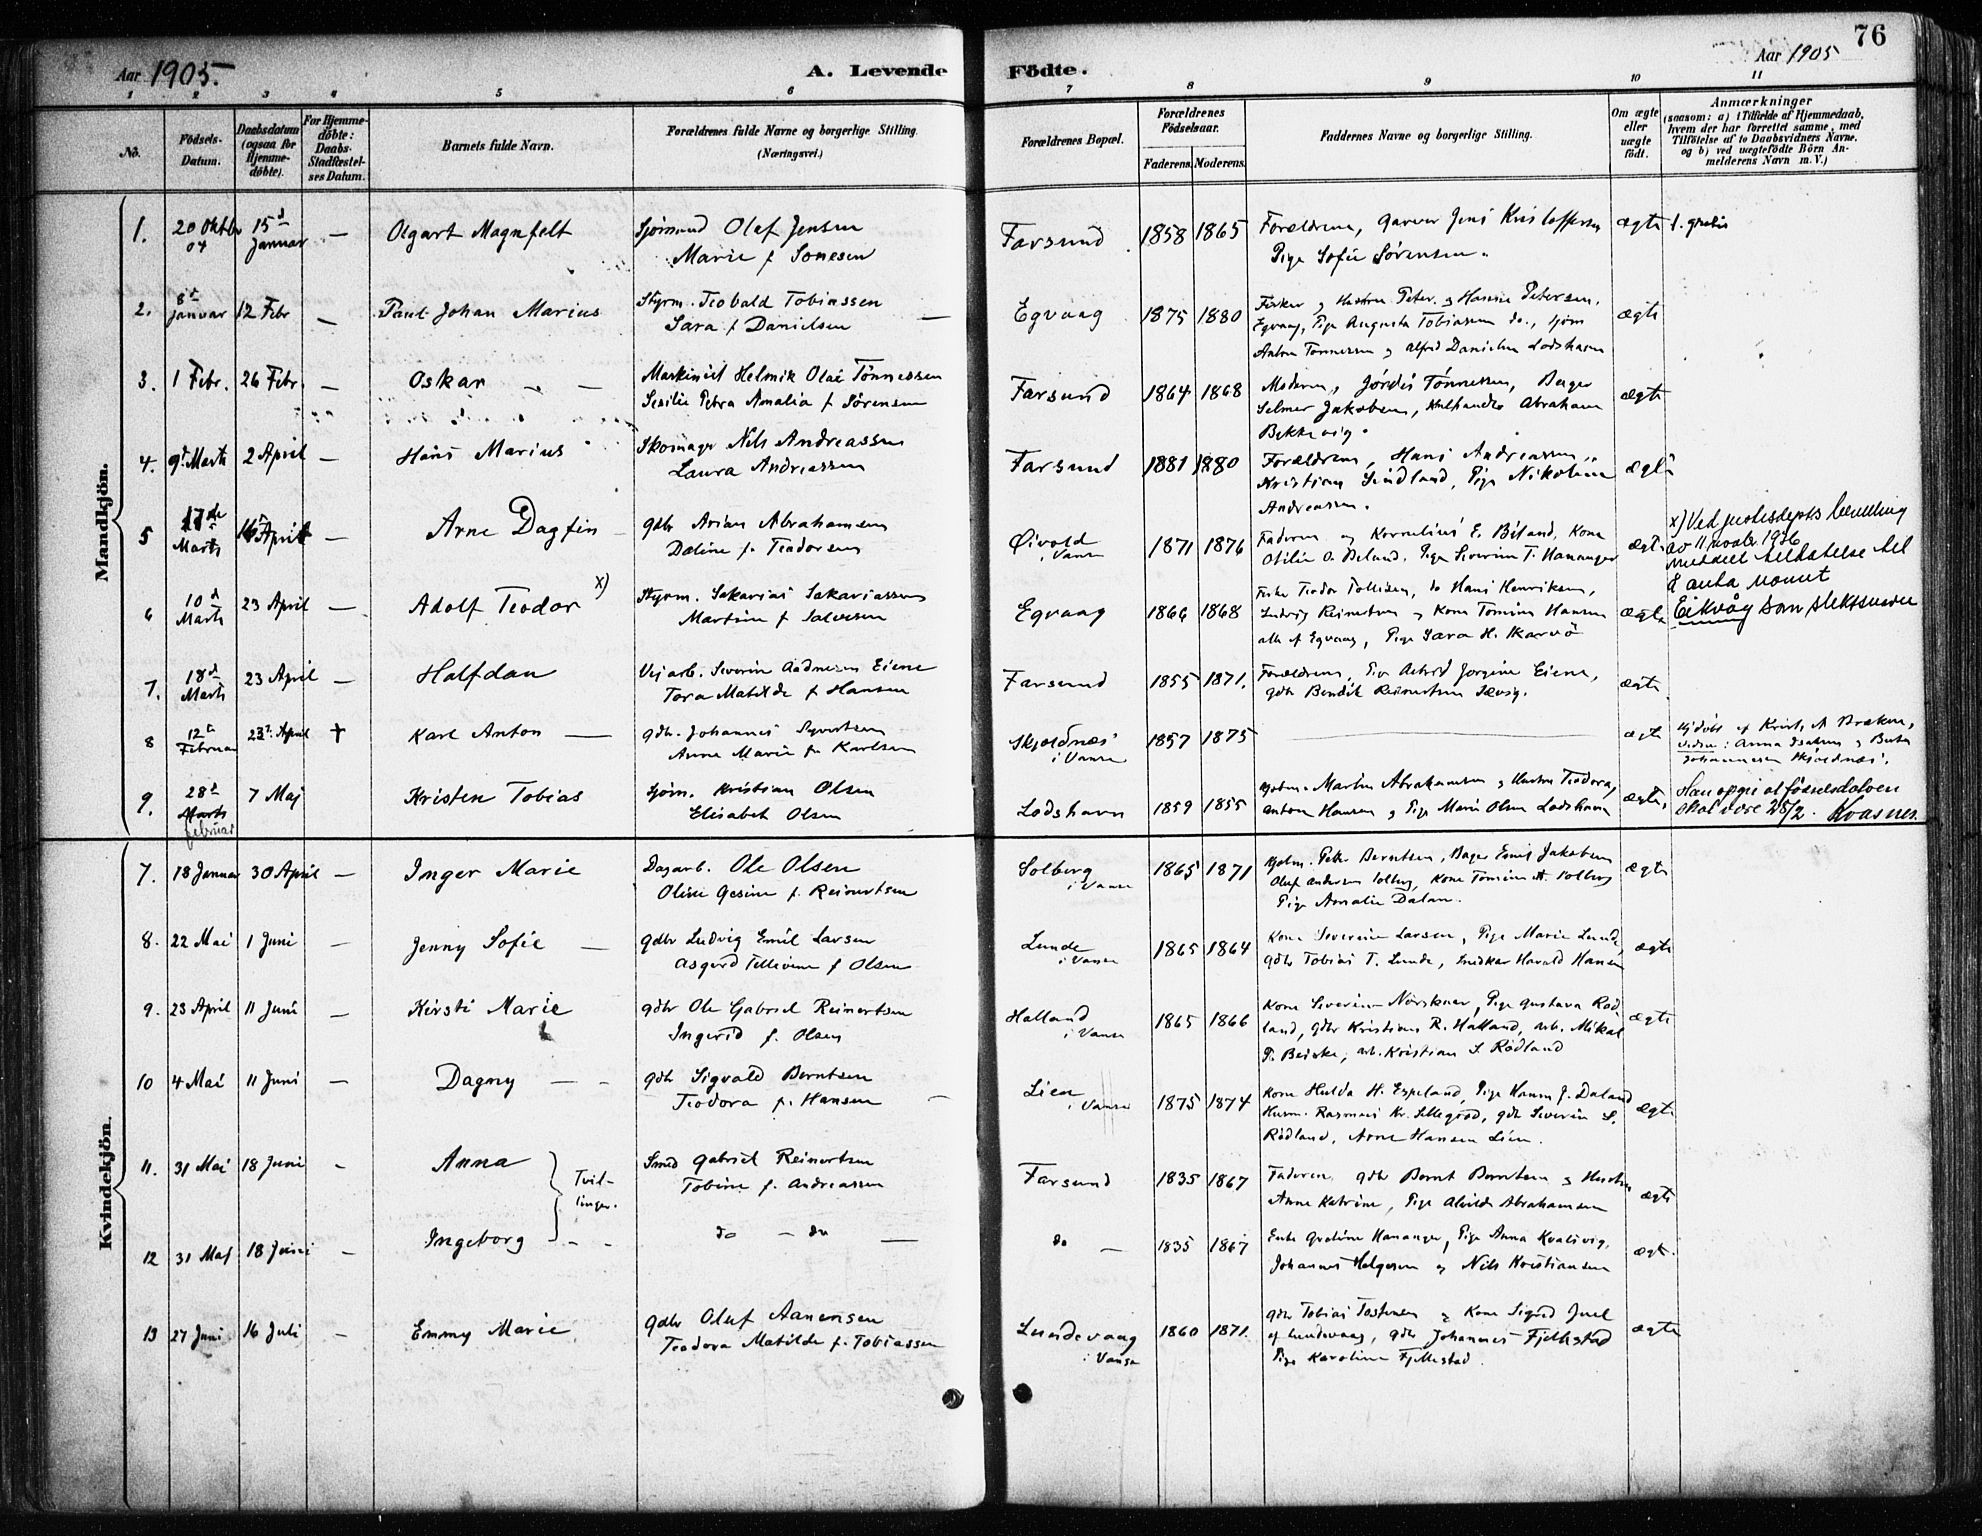 76
Aar 1905.
A. Levende
Födte.
Aar 1905
1 2 3 4 5 6 7 8 9 10 11
No.
Födsels-Datum.
Daabsdatum (ogsaa for Hjemme-döbte).
For Hjemme-döbte: Daabs-Stadfæstel-ses Datum.
Barnets fulde Navn.
Forældrenes fulde Navne og borgerlige Stilling.
(Næringsvei.)
Forældrenes Bopæl.
Forældrenes Födselsaar.
Faderens. Moderens.
Faddernes Navne og borgerlige Stilling.
Om ægte eller uægte födt.
Anmærkninger
(saasom: a) i Tilfælde af Hjemmedaab,
hvem der har forrettet samme, med
Tilföielse af to Daabsvidners Navne.
og b) ved uægtefödte Börn An-
melderens Navn m. V.)
Mandkjön.
1. 20 Oktbr 04 15d Januar — Olgart Magnfelt Sjømand Olaf Jensen Farsund 1858 1865 Forældrene, Garver Jens Kristoffersen ægte
Marie f. Pige Sofie Sørensen.
2. 8d Januar 12 Febr — Paul Johan Marius Styrm. Teobald Tobiassen Egvaag 1875 1880 Fisker og Hustru Peter og Hanne Petersen, ægte
Sara f. Danielsen Egvaag, Pige Augusta Tobiassen do., sjøm
Anton Tønnessen og Alfred Danielsen Lodshavn
3. 1 Febr. 26 Febr. — Oskar — — Maskinist Helmik Olai Tønnessen Farsund 1864 1868 Moderen, Jørdis Tønnessen, Bager ægte
Sesilie Petra Amalia f. Sørensen Selmer Jakobsen, Abraham
Bekkevig.
4. 9d Marts 2 April — Hans Marius Skomager Nils Andreassen Farsund 1881 1880 Forældrene, Hans Andreassen, ægte
Laura Andreassen Kristians Sindland, Pige Nikoline
Andreassen.
5 17de Marts 16 April — Arne Dagfin Gdbr Arian Abrahamsen Øivold i Vanse 1871 1876 Faderen og Kornelius E. Biland, Kone ægte
f. Teodorsen Otilie O. Beland, Pige Severine T. Hananger
x) Ved justisdepts bevilling
av 11 novbr. 1926
meddelt tilladelse til
å anta navnet
Eikvåg som slektsnavn
6 10d Marts 23 April — Adolf Teodor x) Styrm. Sakarias Sakariassen Egvaag 1866 1868 Fisker Teodor Tollisen, do Hans Henriksen, ægte
Martine f. Salvesen Ludvig Reinertsen og Kone Tomine Hansen
alle af Egvaag, Pige Sara H.
7. 18d Marts 23 April — Halfdan Vejarb. Severin Aadnesen Eiene Farsund 1855 1871. Forældrene, Pige Astrid Jorgine Eiene, ægte
Tora Matilde f. Hansen Gdbr Bendik Reinertsen
8 12te Februar 23 April + Karl Anton — Gdb. Johannes Syvertsen Skjoldnæs i Vanse 1857 1875 ægte
Anne Marie f. Karlsen
Hjdøbt af Krist. A. Bræken,
vidner: Anna Isaksen og Berta
Johannessen Skjoldnæs.
9. 28d Marts Februar 7 Maj Kristen Tobias Sjøm. Kristian Olsen Lodshavn 1859 1855 Martin Abrahamsen og Hustru Teodora, ægte
Elisabet Olsen Anton Hansen og Pige Marie Olsen Lodshavn
Han opgir at fødselsdatoen
skal være 28/2. Kvasnes.
Kvindekjön.
7. 18 Januar 30 April — Inger Marie Dagarb. Ole Olsen Solberg i Vanse 1865 1871 Peter Berntsen, Bager Emil Jakobsen ægte
Oline Gesine f. Reinertsen Oluf Andersen Solberg, Kone Tomine A. Solberg
Pige Amalie Dalan.
8. 22 Mai 1 Juni — Jenny Sofie — Gdbr Ludvig Emil Larsen Lunde i Vanse 1865 1864 Kone Severine Larsen, Pige Marie Lunde, ægte
Asgerd f. Olsen Gdbr Tobias T. Lunde, Snedker Harald Hansen
9. 23 April 11 Juni — Kirsti Marie Gdbr Ole Gabriel Reinertsen Halland i Vanse 1865 1866 Kone Severine Nørskaar, Pige Gustava Rød ægte
Ingerid f. Olsen land, Gdbr Kristian R. Halland, arb. Mikal
arb. Kristian S. Rødland
10 4 Mai 11 Juni — Dagny — — Gdbr Sigvald Berntsen Lien i Vanse 1875 1874 Kone Hulda H. Espeland, Pige Hansine J. Daland ægte
Teodora f. Hansen Husm. Rasmus Kr. Sellegrod, Gdbr Severin S.
Rødland, Arne Hansen Lien.
11. 31 Mai 18 Juni — Anna Tvil-linger. Smed Gabriel Reinertsen Farsund 1835 1867 Faderen, Gdbr Bernt Berntsen og Hustru ægte
Tobine f. Andreassen Anne Katrine, Pige Alvilde Abrahamsen
12 31 Maj 18 Juni — Ingeborg — — do — do — do — 1835 1867 Enke Hananger, Pige Anna Kvalsvig, ægt.
Johannes Helgesen og Nils Kristiansen
13 27 Juni 16 Juli — Emmy Marie Gdbr Oluf Aanensen Lundevaag i Vanse 1860 1871. Gdbr Tobias Tostensen og Kone Sigrid Juel ægte
Teodora Matilde f. Tobiassen af Lundevaag, Gdbr Johannes Fjellestad
Pige Karoline Fjellestad.